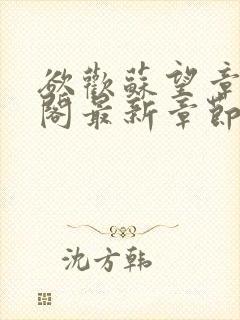 欲歡蘇望章
閣最新章節
沈方韩